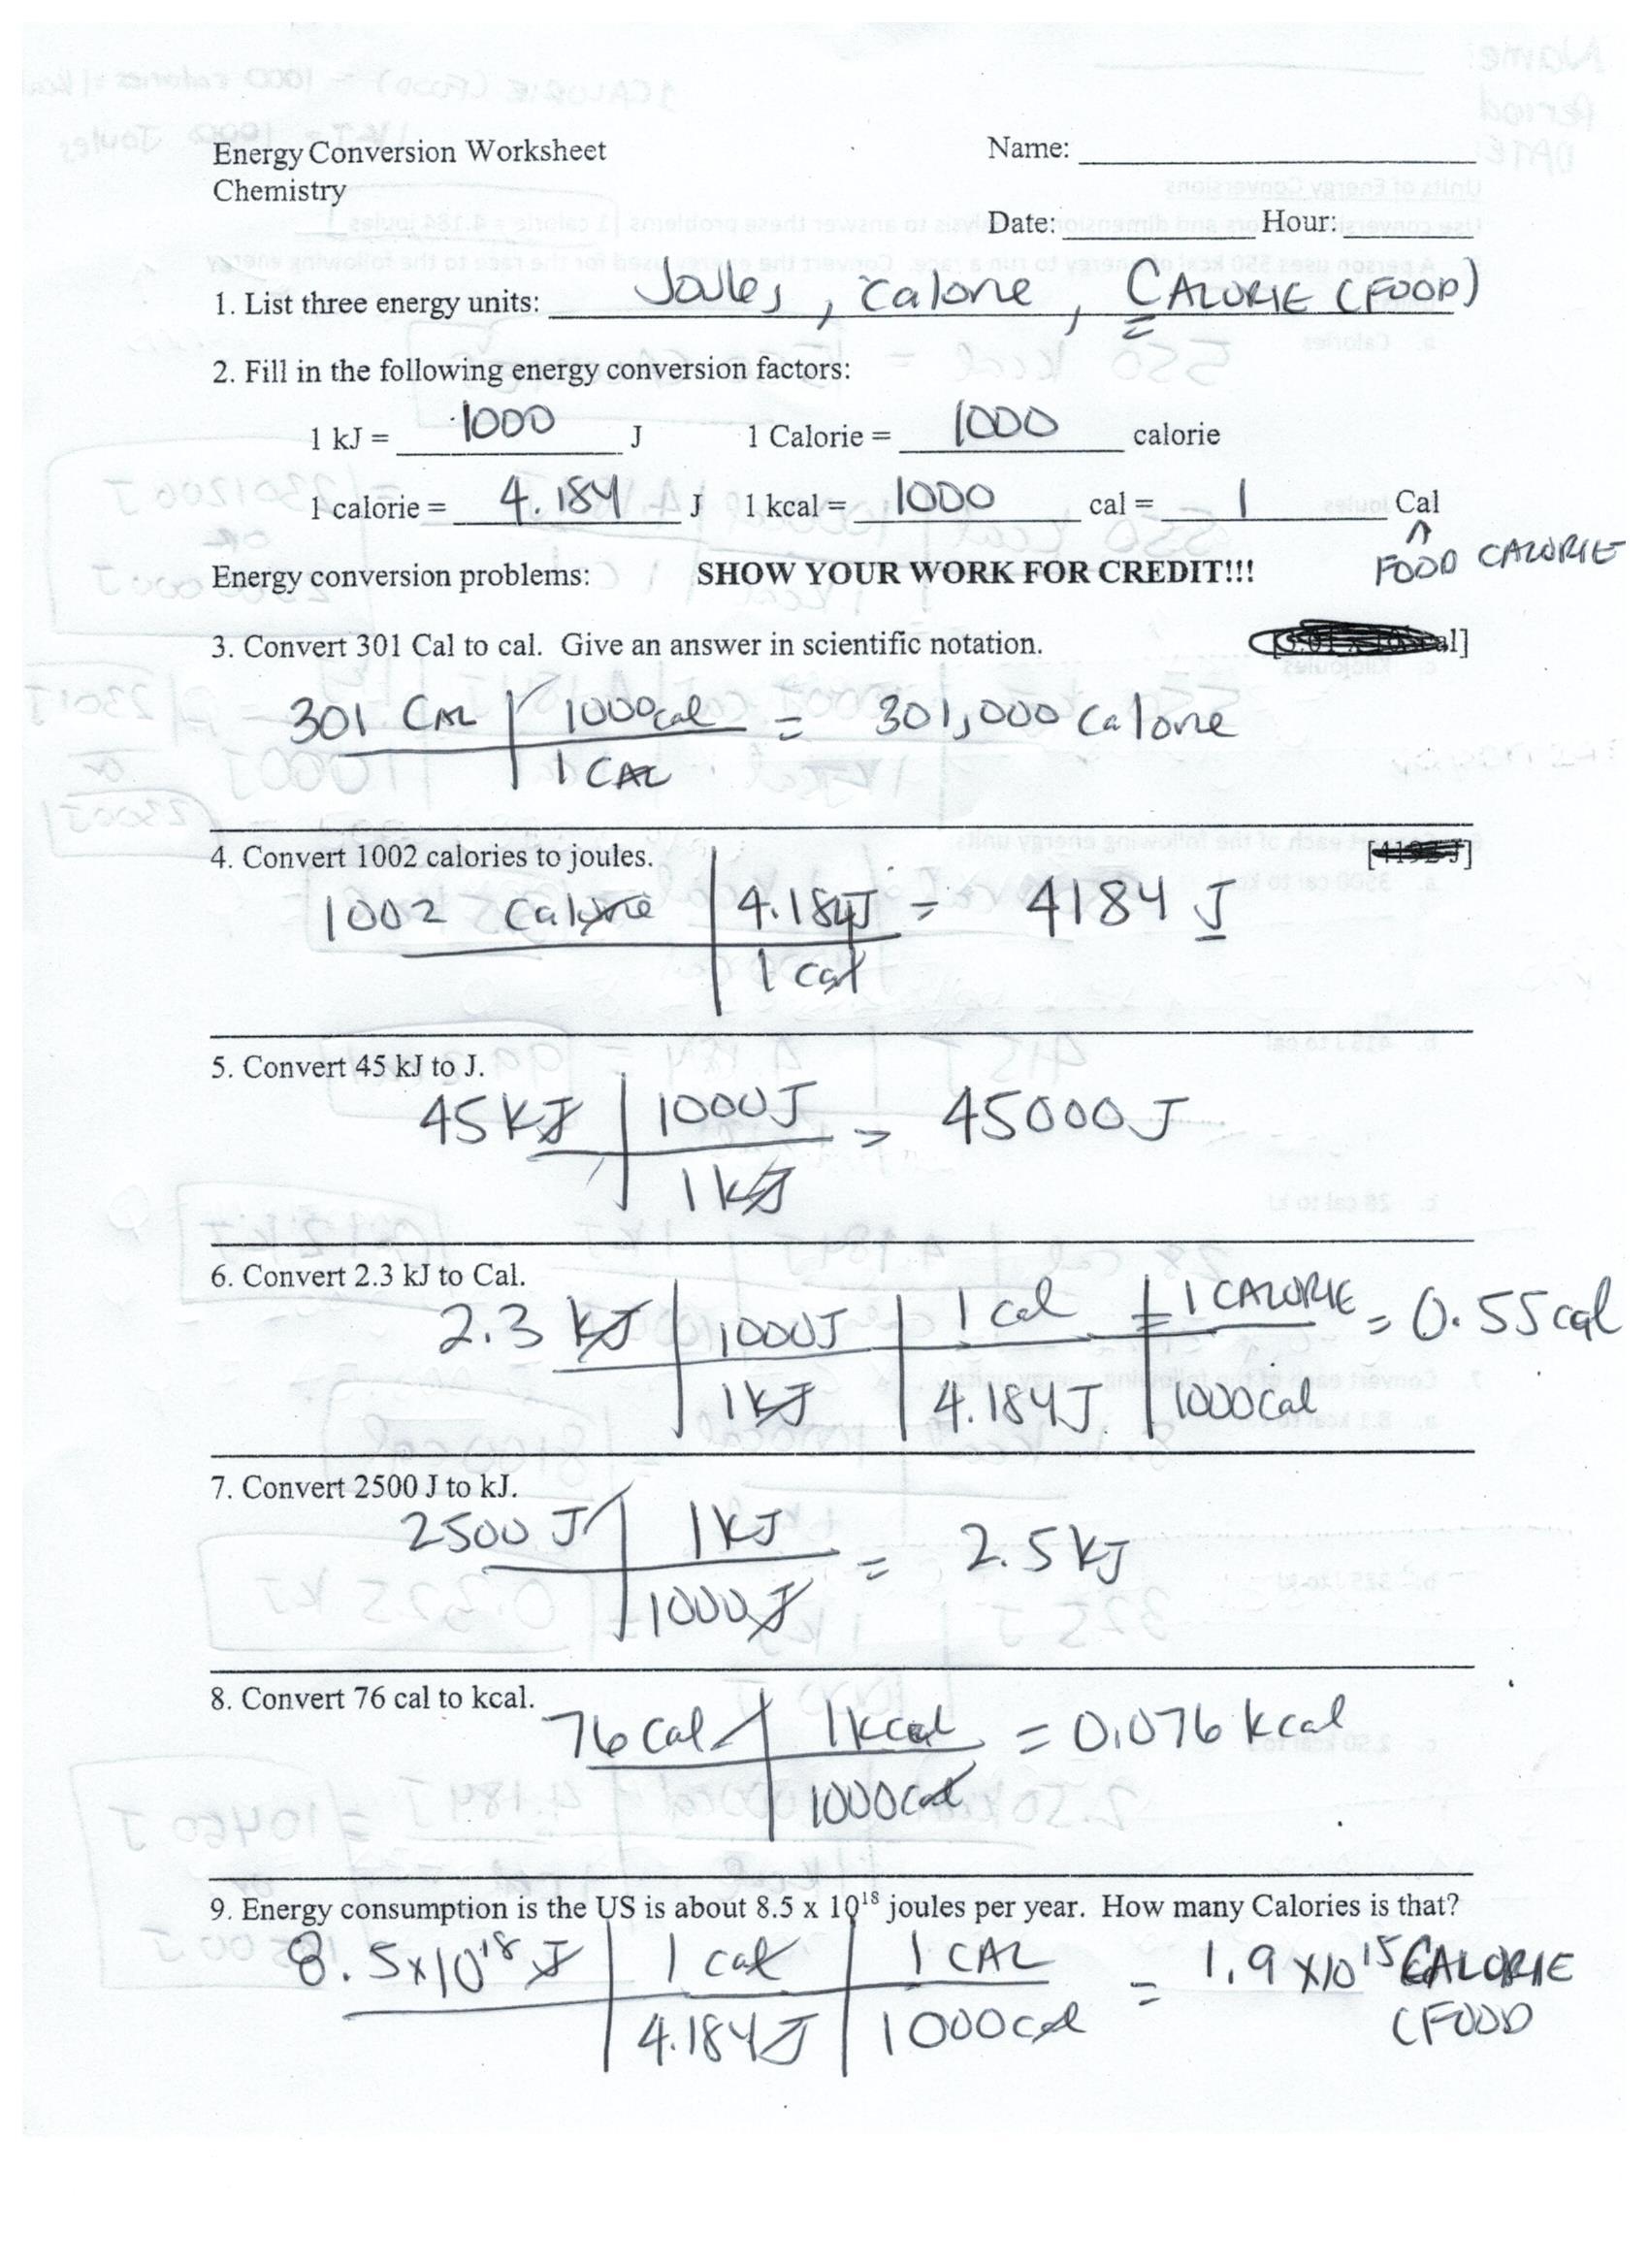 Energy Conversion Worksheet Name:
Chemistry
Date: Hour:
1. List three energy units: Joules, calorie, CALORIE (FOOD)
2. Fill in the following energy conversion factors:
1 kJ = 1000 J 1 Calorie = 1000 calorie
1 calorie = 4.184 J 1 kcal = 1000 cal = 1 Cal
↑
FOOD CALORIE
Energy conversion problems: SHOW YOUR WORK FOR CREDIT!!!
3. Convert 301 Cal to cal. Give an answer in scientific notation. al]
301 CAL | 1000cal = 301,000 calorie
1 CAL
4. Convert 1002 calories to joules. [ ]
1002 calorie | 4.184J = 4184 J
1 cal
5. Convert 45 kJ to J.
45 kJ | 1000J = 45000J
1kJ
6. Convert 2.3 kJ to Cal.
2.3 kJ | 1000J | 1 cal | 1 CALORIE = 0.55cal
1kJ | 4.184J | 1000cal
7. Convert 2500 J to kJ.
2500 J | 1kJ = 2.5kJ
1000J
8. Convert 76 cal to kcal.
76 cal | 1kcal = 0.076 kcal
1000cal
9. Energy consumption is the US is about 8.5 x 10¹⁸ joules per year. How many Calories is that?
8.5x10¹⁸ J | 1 cal | 1 CAL = 1.9 x10¹⁵ CALORIE
4.184J | 1000cal (FOOD